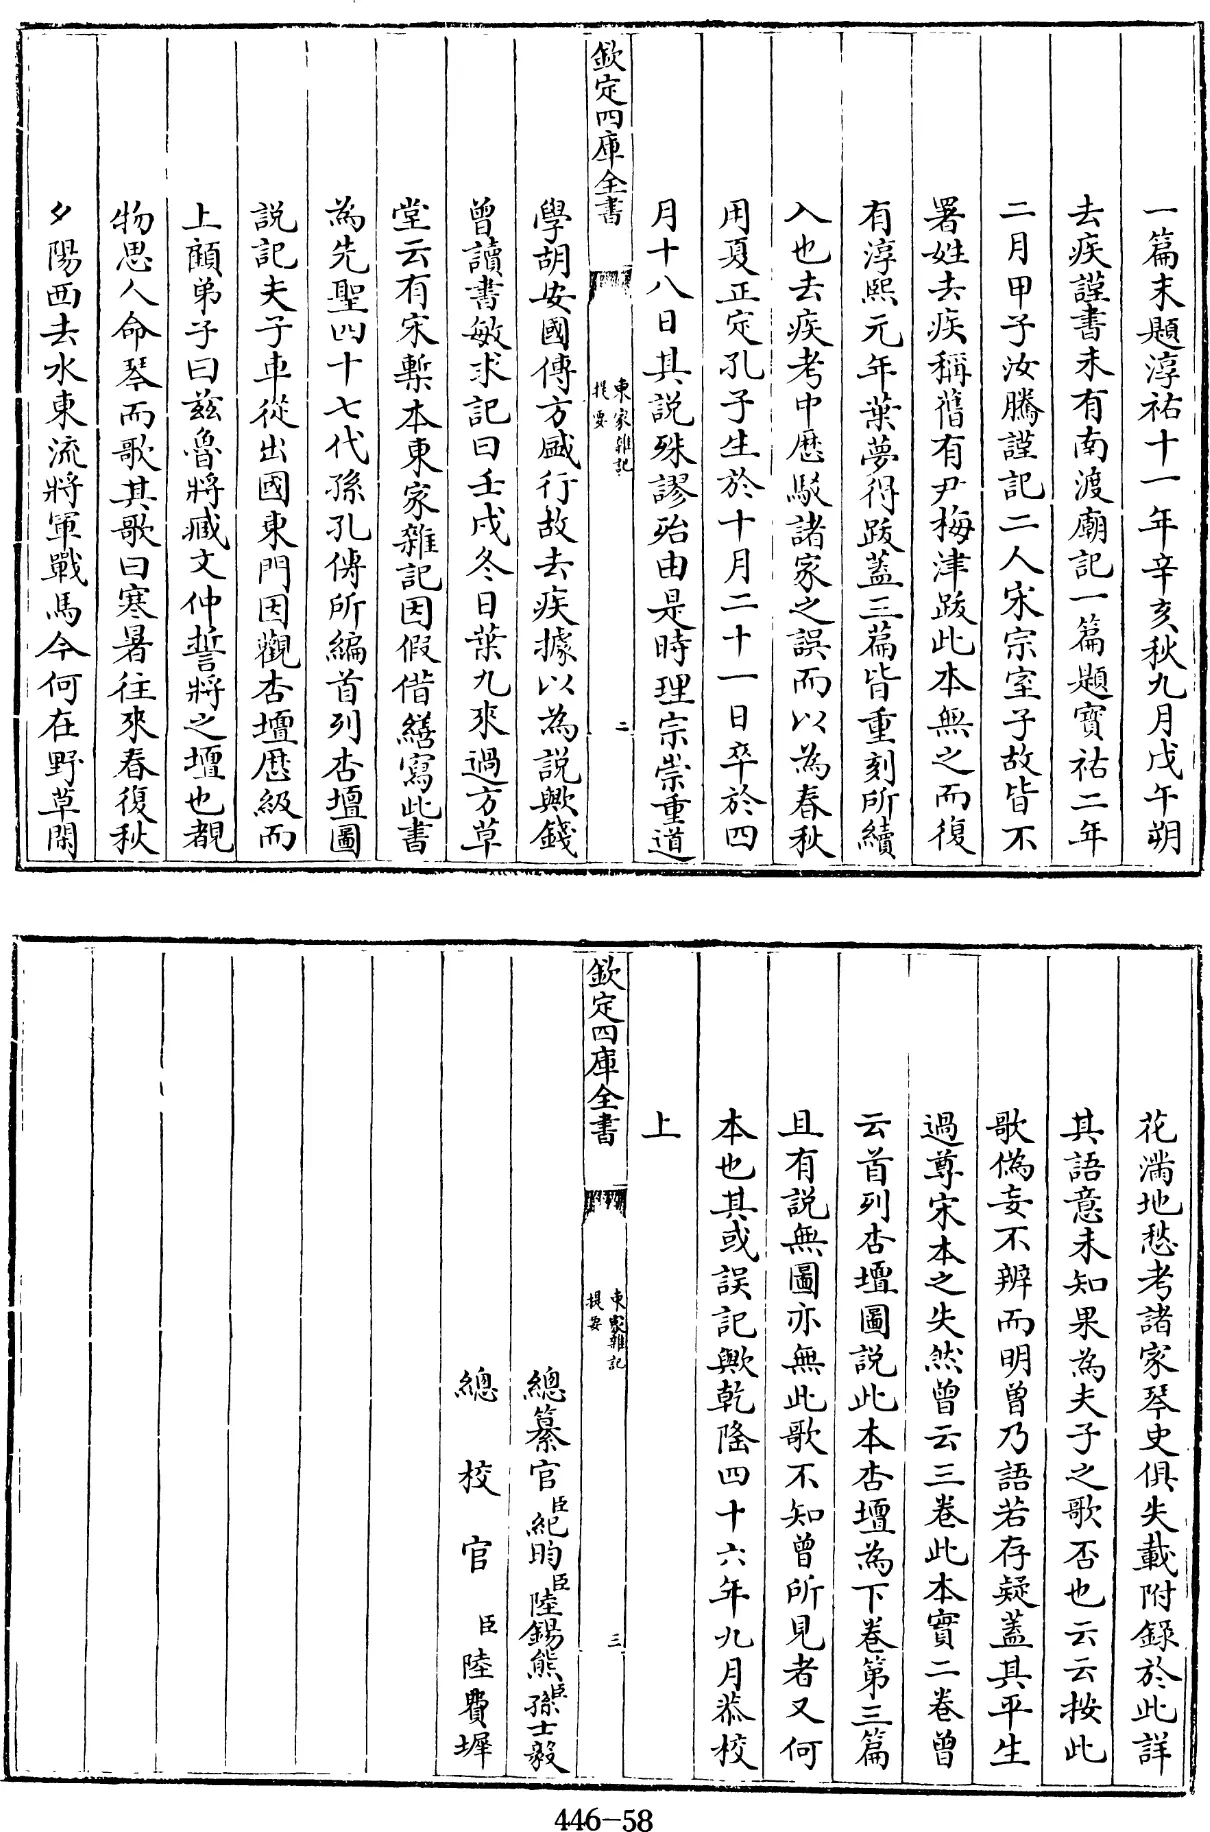 一篇末題淳祐十一年辛亥秋九月戊午朔
去疾謹書末有南渡廟記一篇題寳祐二年
二月甲子汝騰謹記二人宋宗室子故皆不
署姓去疾稱舊有尹梅津跋此本無之而復
有淳熙元年葉夢得跋蓋三篇皆重刻所續
入也去疾考中厯駁諸家之誤而以為春秋
用夏正定孔子生於十月二十一日卒於四
月十八日其説殊謬殆由是時理宗崇重道
欽定四庫全書
東家雜記
提要
二
學胡安國傳方盛行故去疾據以為説歟錢
曾讀書敏求記曰壬戌冬日葉九來過方草
堂云有宋槧本東家雜記因假借繕寫此書
為先聖四十七代孫孔傳所編首列杏壇圖
説記夫子車從出國東門因觀杏壇厯級而
上顧弟子曰兹魯將臧文仲誓將之壇也覩
物思人命琴而歌其歌曰寒暑往來春復秋
夕陽西去水東流將軍戰馬今何在野草閑
花滿地愁考諸家琴史俱失載附錄於此詳
其語意未知果為夫子之歌否也云云按此
歌偽妄不辨而明曾乃語若存疑蓋其平生
過尊宋本之失然曾云三卷此本實二卷曾
云首列杏壇圖説此本杏壇為下卷第三篇
且有説無圖亦無此歌不知曾所見者又何
本也其或誤記歟乾隆四十六年九月恭校
上
欽定四庫全書
東家雜記
提要
三
總纂官臣紀昀臣陸錫熊臣孫士毅
總校官臣陸費墀
446-58